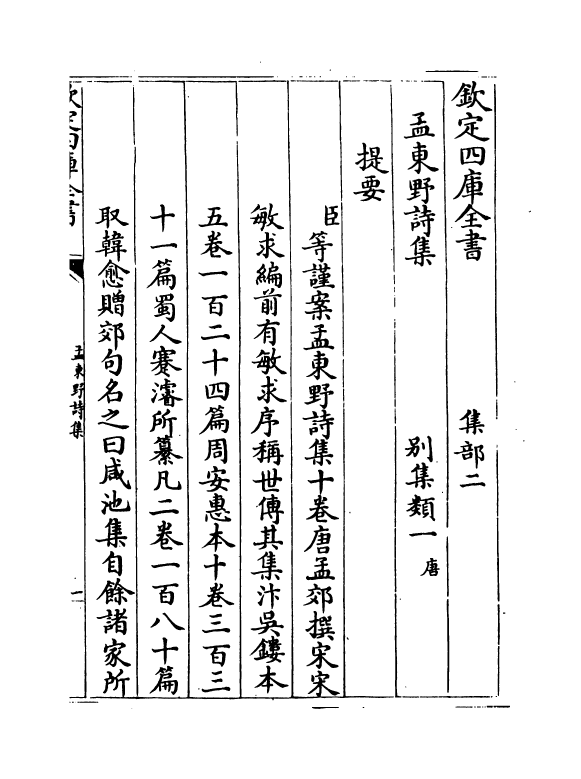 欽定四庫全書　集部二
孟東野詩集　別集類一　唐
提要
臣等謹案孟東野詩集十卷唐孟郊撰宋宋
敏求編前有敏求序稱世傳其集汴吳鏤本
五卷一百二十四篇周安惠本十卷三百三
十一篇蜀人蹇濬所纂凡二卷一百八十篇
取韓愈贈郊句名之曰咸池集自餘諸家所
欽定四庫全書　孟東野詩集　一